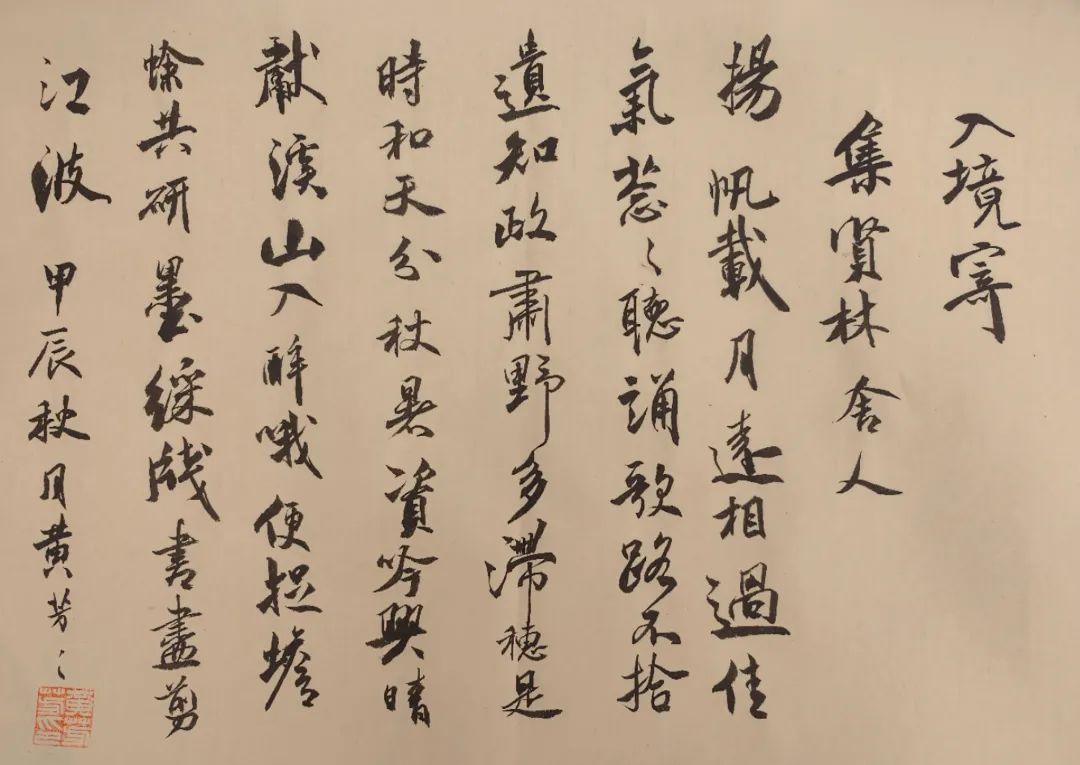 入境寄
集賢林舍人
揚帆載月遠相過佳
氣葱〻聽誦歌路不拾
遺知政肅野多滯穗是
時和天分秋暑資吟興晴
獻溪山入醉哦便捉蟾
蜍共研墨綵牋書盡剪
江波 甲辰秋月黄芳〻